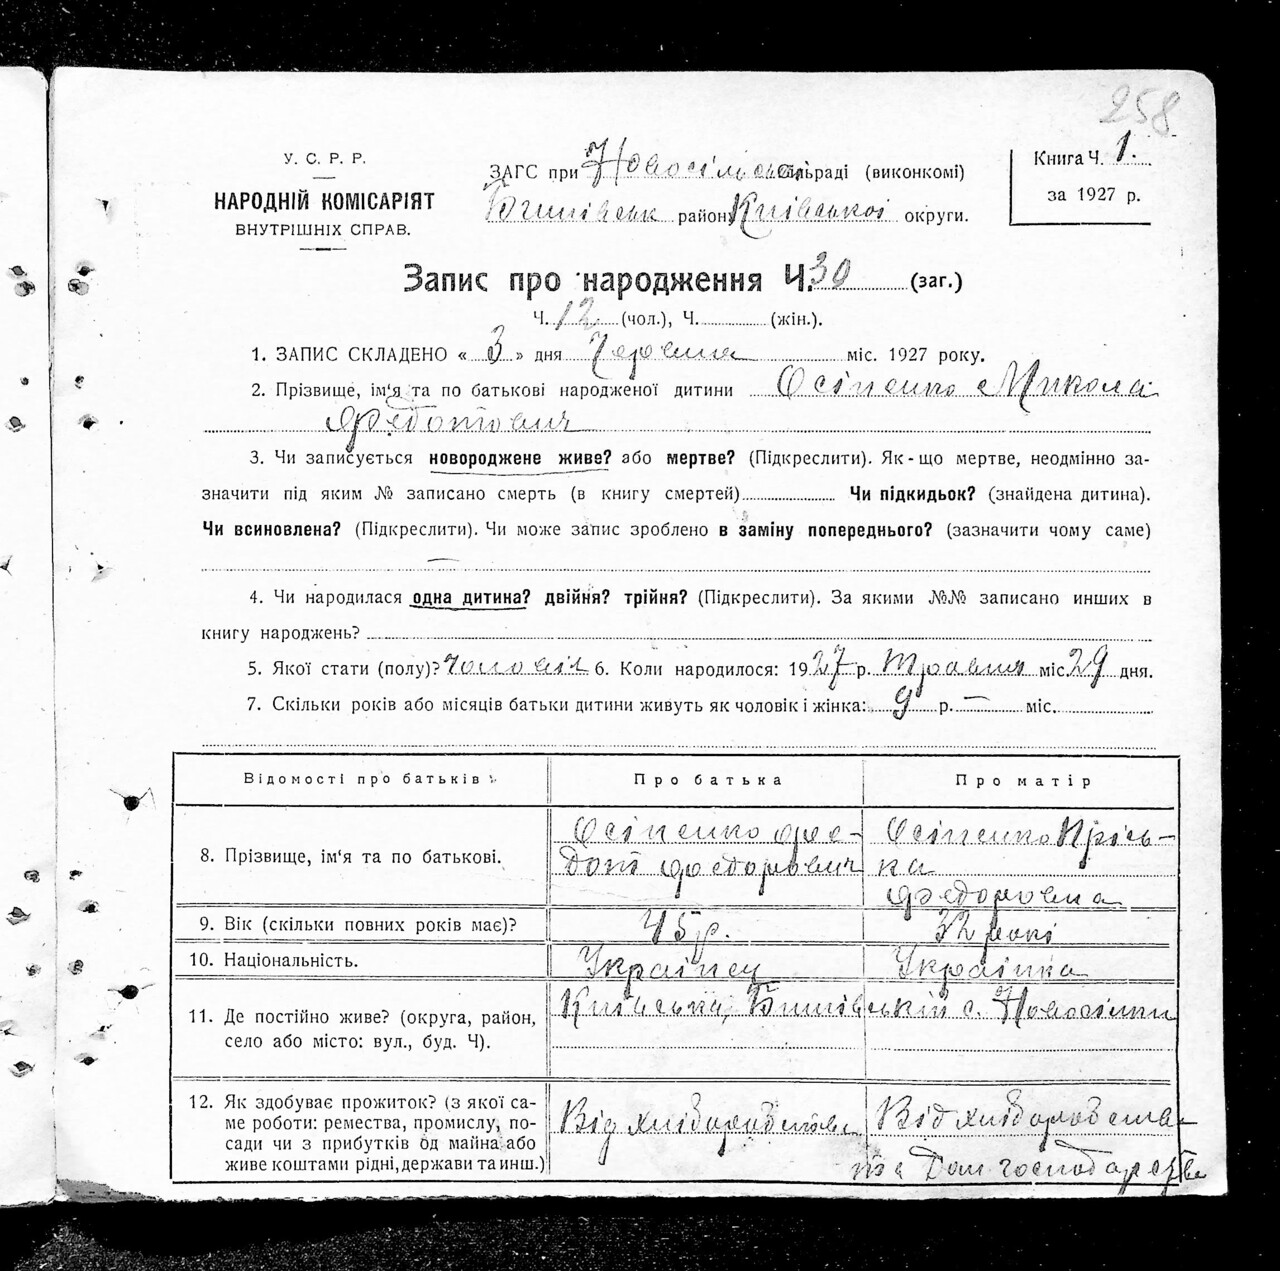 258
У. С. Р. Р.
НАРОДНІЙ КОМІСАРІЯТ
ВНУТРІШНІХ СПРАВ.
ЗАГС при Новосільській сільраді (виконкомі)
Бишівськ район Київської округи.
Книга Ч. 1.
за 1927 р.
Запис про народження Ч. 30 (заг.)
Ч. 12 (чол.), Ч. (жін.).
1. ЗАПИС СКЛАДЕНО « 3 » дня Червня міс. 1927 року.
2. Прізвище, ім'я та по батькові народженої дитини Осіпенко Микола
Федотович
3. Чи записується новороджене живе? або мертве? (Підкреслити). Як-що мертве, неодмінно за-
значити під яким № записано смерть (в книгу смертей) Чи підкидьок? (знайдена дитина).
Чи всиновлена? (Підкреслити). Чи може запис зроблено в заміну попереднього? (зазначити чому саме)
—
4. Чи народилася одна дитина? двійня? трійня? (Підкреслити). За якими №№ записано инших в
книгу народжень?
5. Якої стати (полу)? чоловіч 6. Коли народилося: 1927 р. Травня міс 29 дня.
7. Скільки років або місяців батьки дитини живуть як чоловік і жінка: 9 р. — міс.
Відомості про батьків
Про батька
Про матір
8. Прізвище, ім'я та по батькові.
Осіпенко Фе-
дот Федорович
Осіпенко Прісь-
ка
Федоровна
9. Вік (скільки повних років має)?
45 р.
32 рокі
10. Національність.
Українец
Українка
11. Де постійно живе? (округа, район,
село або місто: вул., буд. Ч).
Київська, Бишівський с. Новосілки
12. Як здобуває прожиток? (з якої са-
ме роботи: ремества, промислу, по-
сади чи з прибутків од майна або
живе коштами рідні, держави та инш.)
Від хлібаробства
Від хлібаробства
та Дом господарства